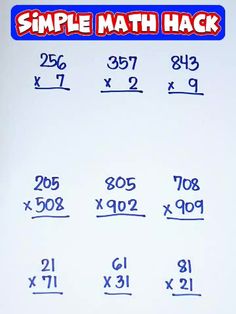 SiMPLE MATH HACK
256 357 843
x 7 x 2 x 9
205 805 708
x 508 x 902 x 909
21 61 81
x 71 x 31 x 21